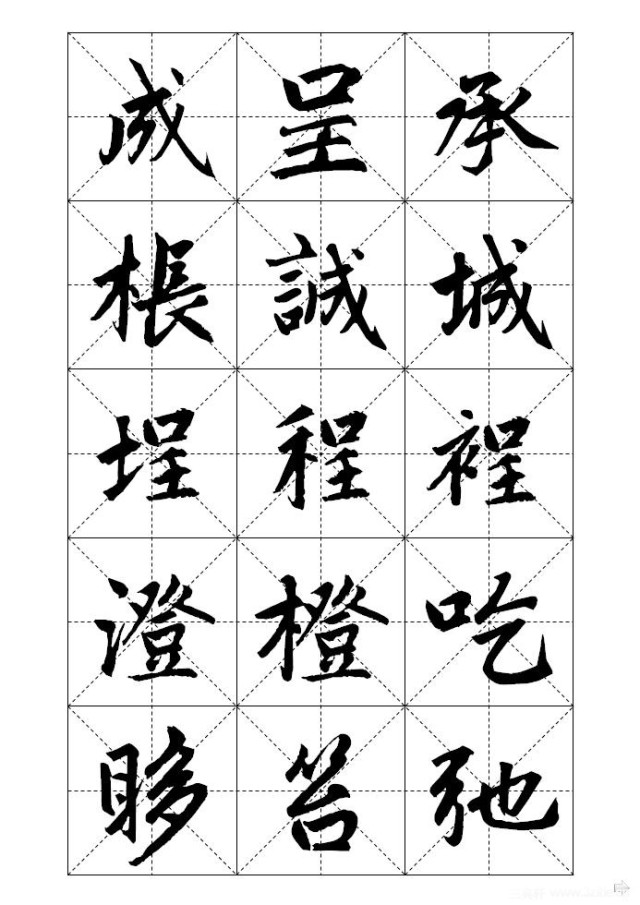 成呈承
棖誠城
埕程裎
澄橙吃
眵笞弛